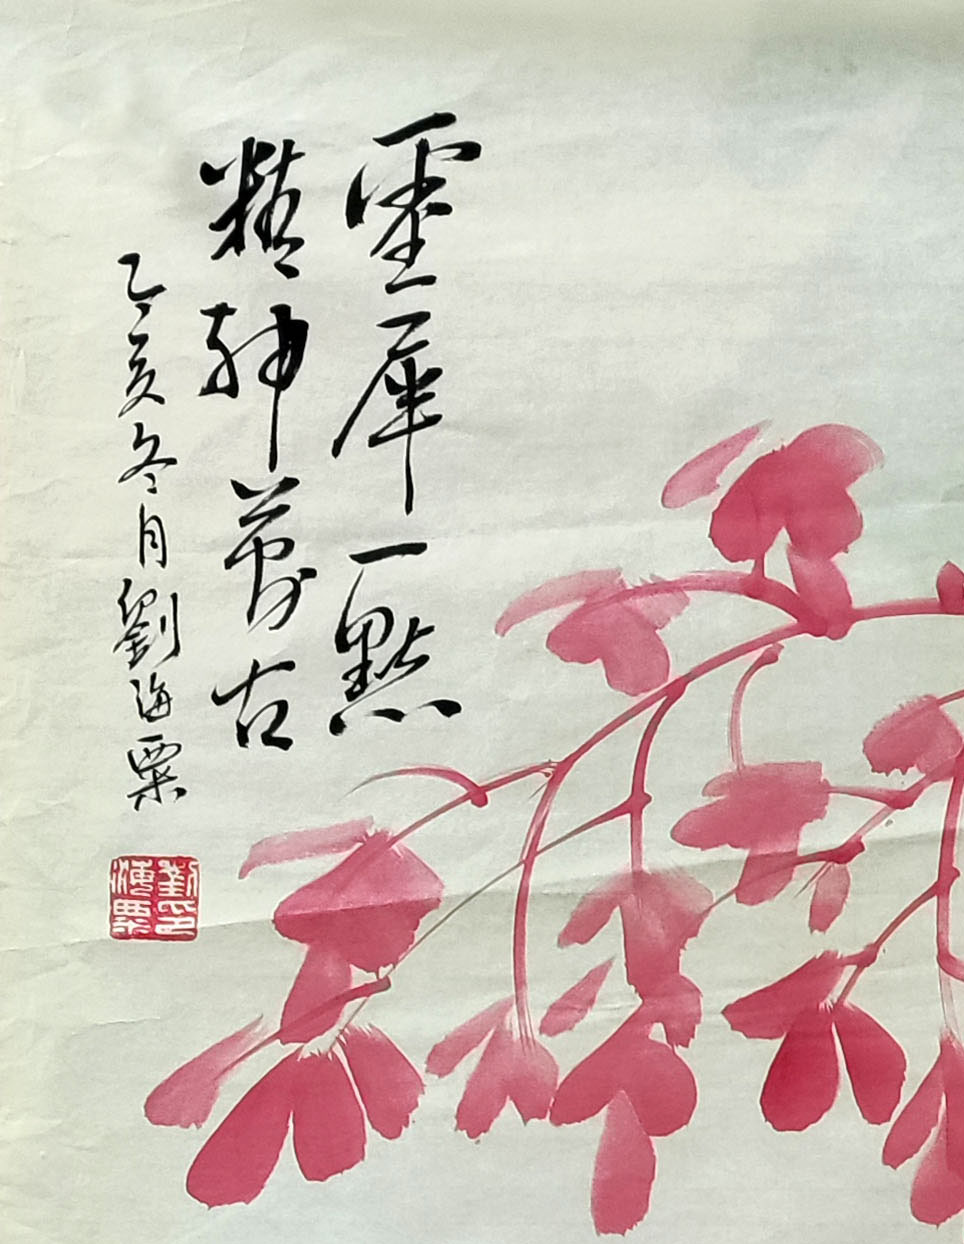 靈犀一點
精神萬古
乙亥冬月劉海粟
劉海粟印